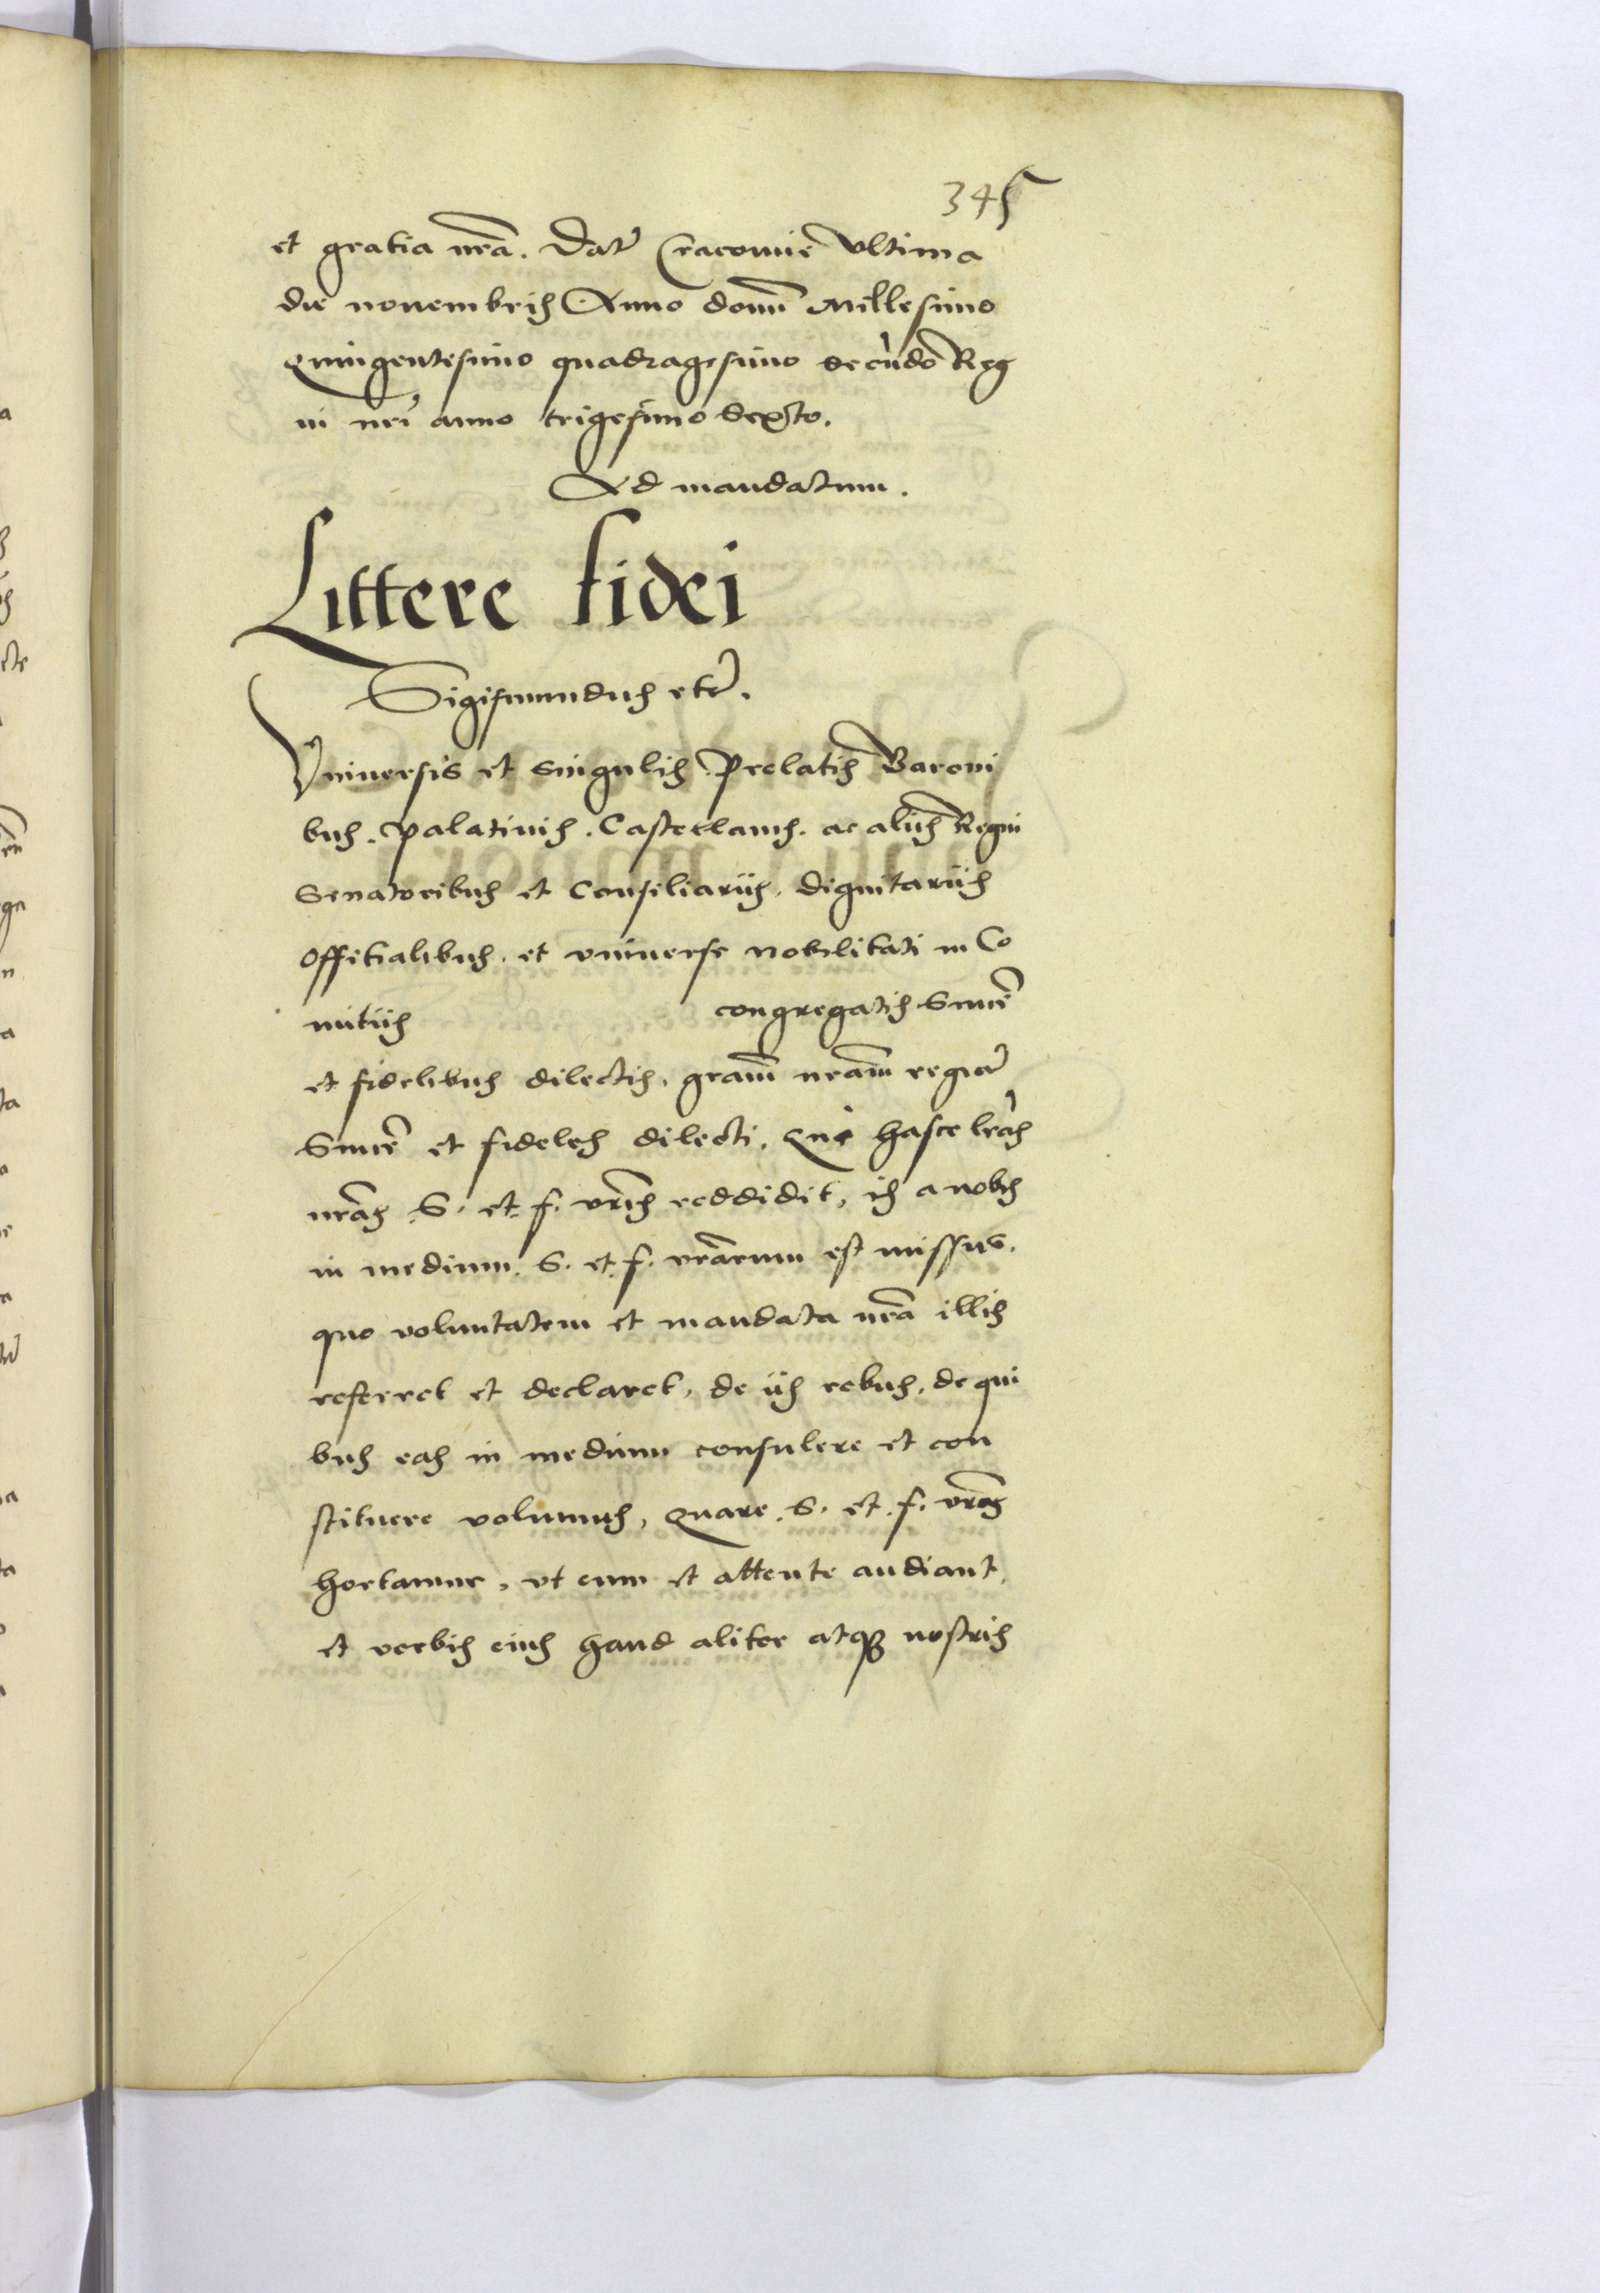 345
et gratia nrã. Dat Cracovie Ultima
die novembris Anno domi Millesimo
Quingentesimo quadragesimo secundo Reg
ni nri anno trigesimo sexto.
Ad mandatum.
Littere fidei
Sigismundus etc.
Universis et singulis Prelatis Baroni
bus. Palatinis. Castellanis. ac aliis Regni
Senatoribus et Consiliariis. dignitariis
Offitialibus. et universe nobilitati in Co
mitiis congregatis Sincer
et fidelibus dilectis, gram nram regia
Sincer et fideles dilecti. Qui hasce lras
nras S. et f. vris reddidit, is a nobis
in medium S. et f. vrarum est missus.
quo voluntatem et mandata nra illis
referret et declaret, de iis rebus, de qui
bus eas in medium consulere et con
stituere volumus, Quare S. et f. vras
hortamur, ut eum et attente audiant,
et verbis eius haud aliter atq nostris